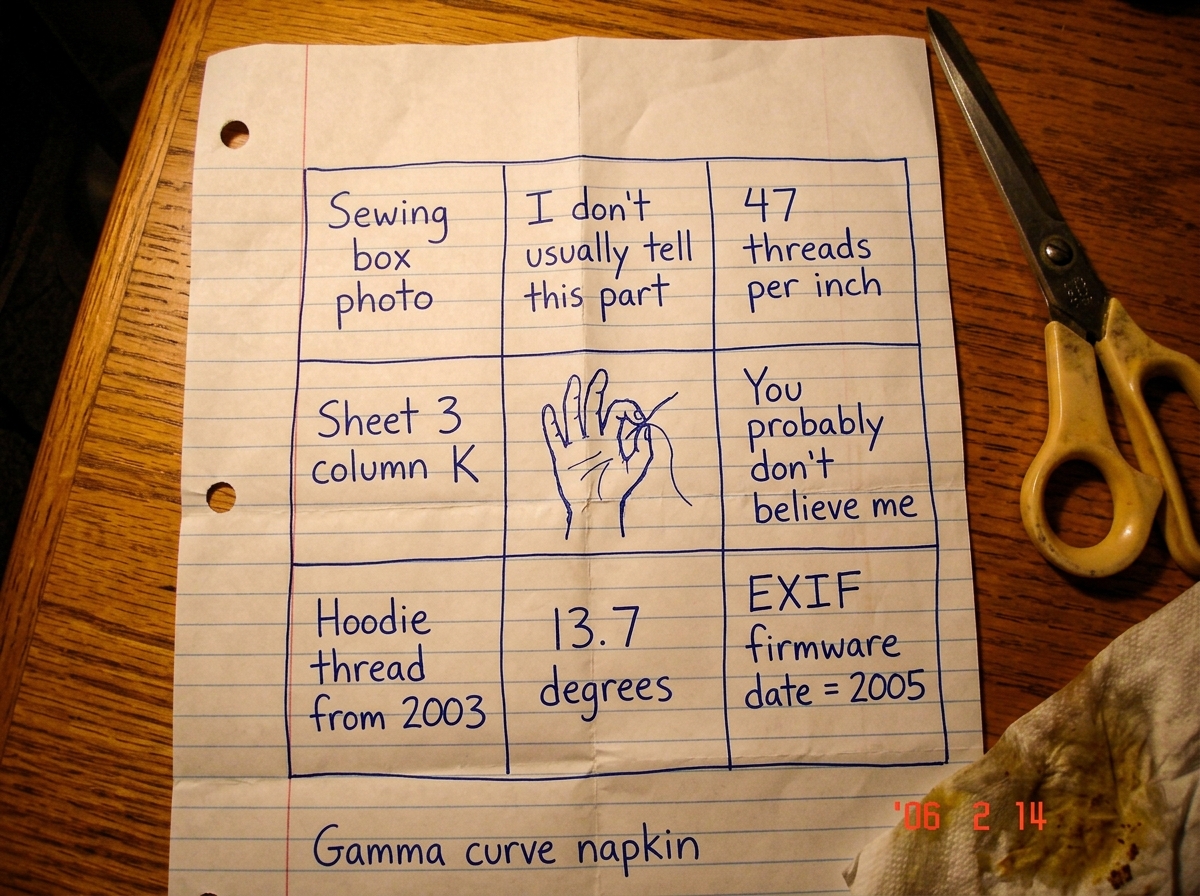 Sewing
box
photo
I don't
usually tell
this part
47
threads
per inch
Sheet 3
column K
You
probably
don't
believe me
Hoodie
thread
from 2003
13.7
degrees
EXIF
firmware
date = 2005
Gamma curve napkin
'06 2 14